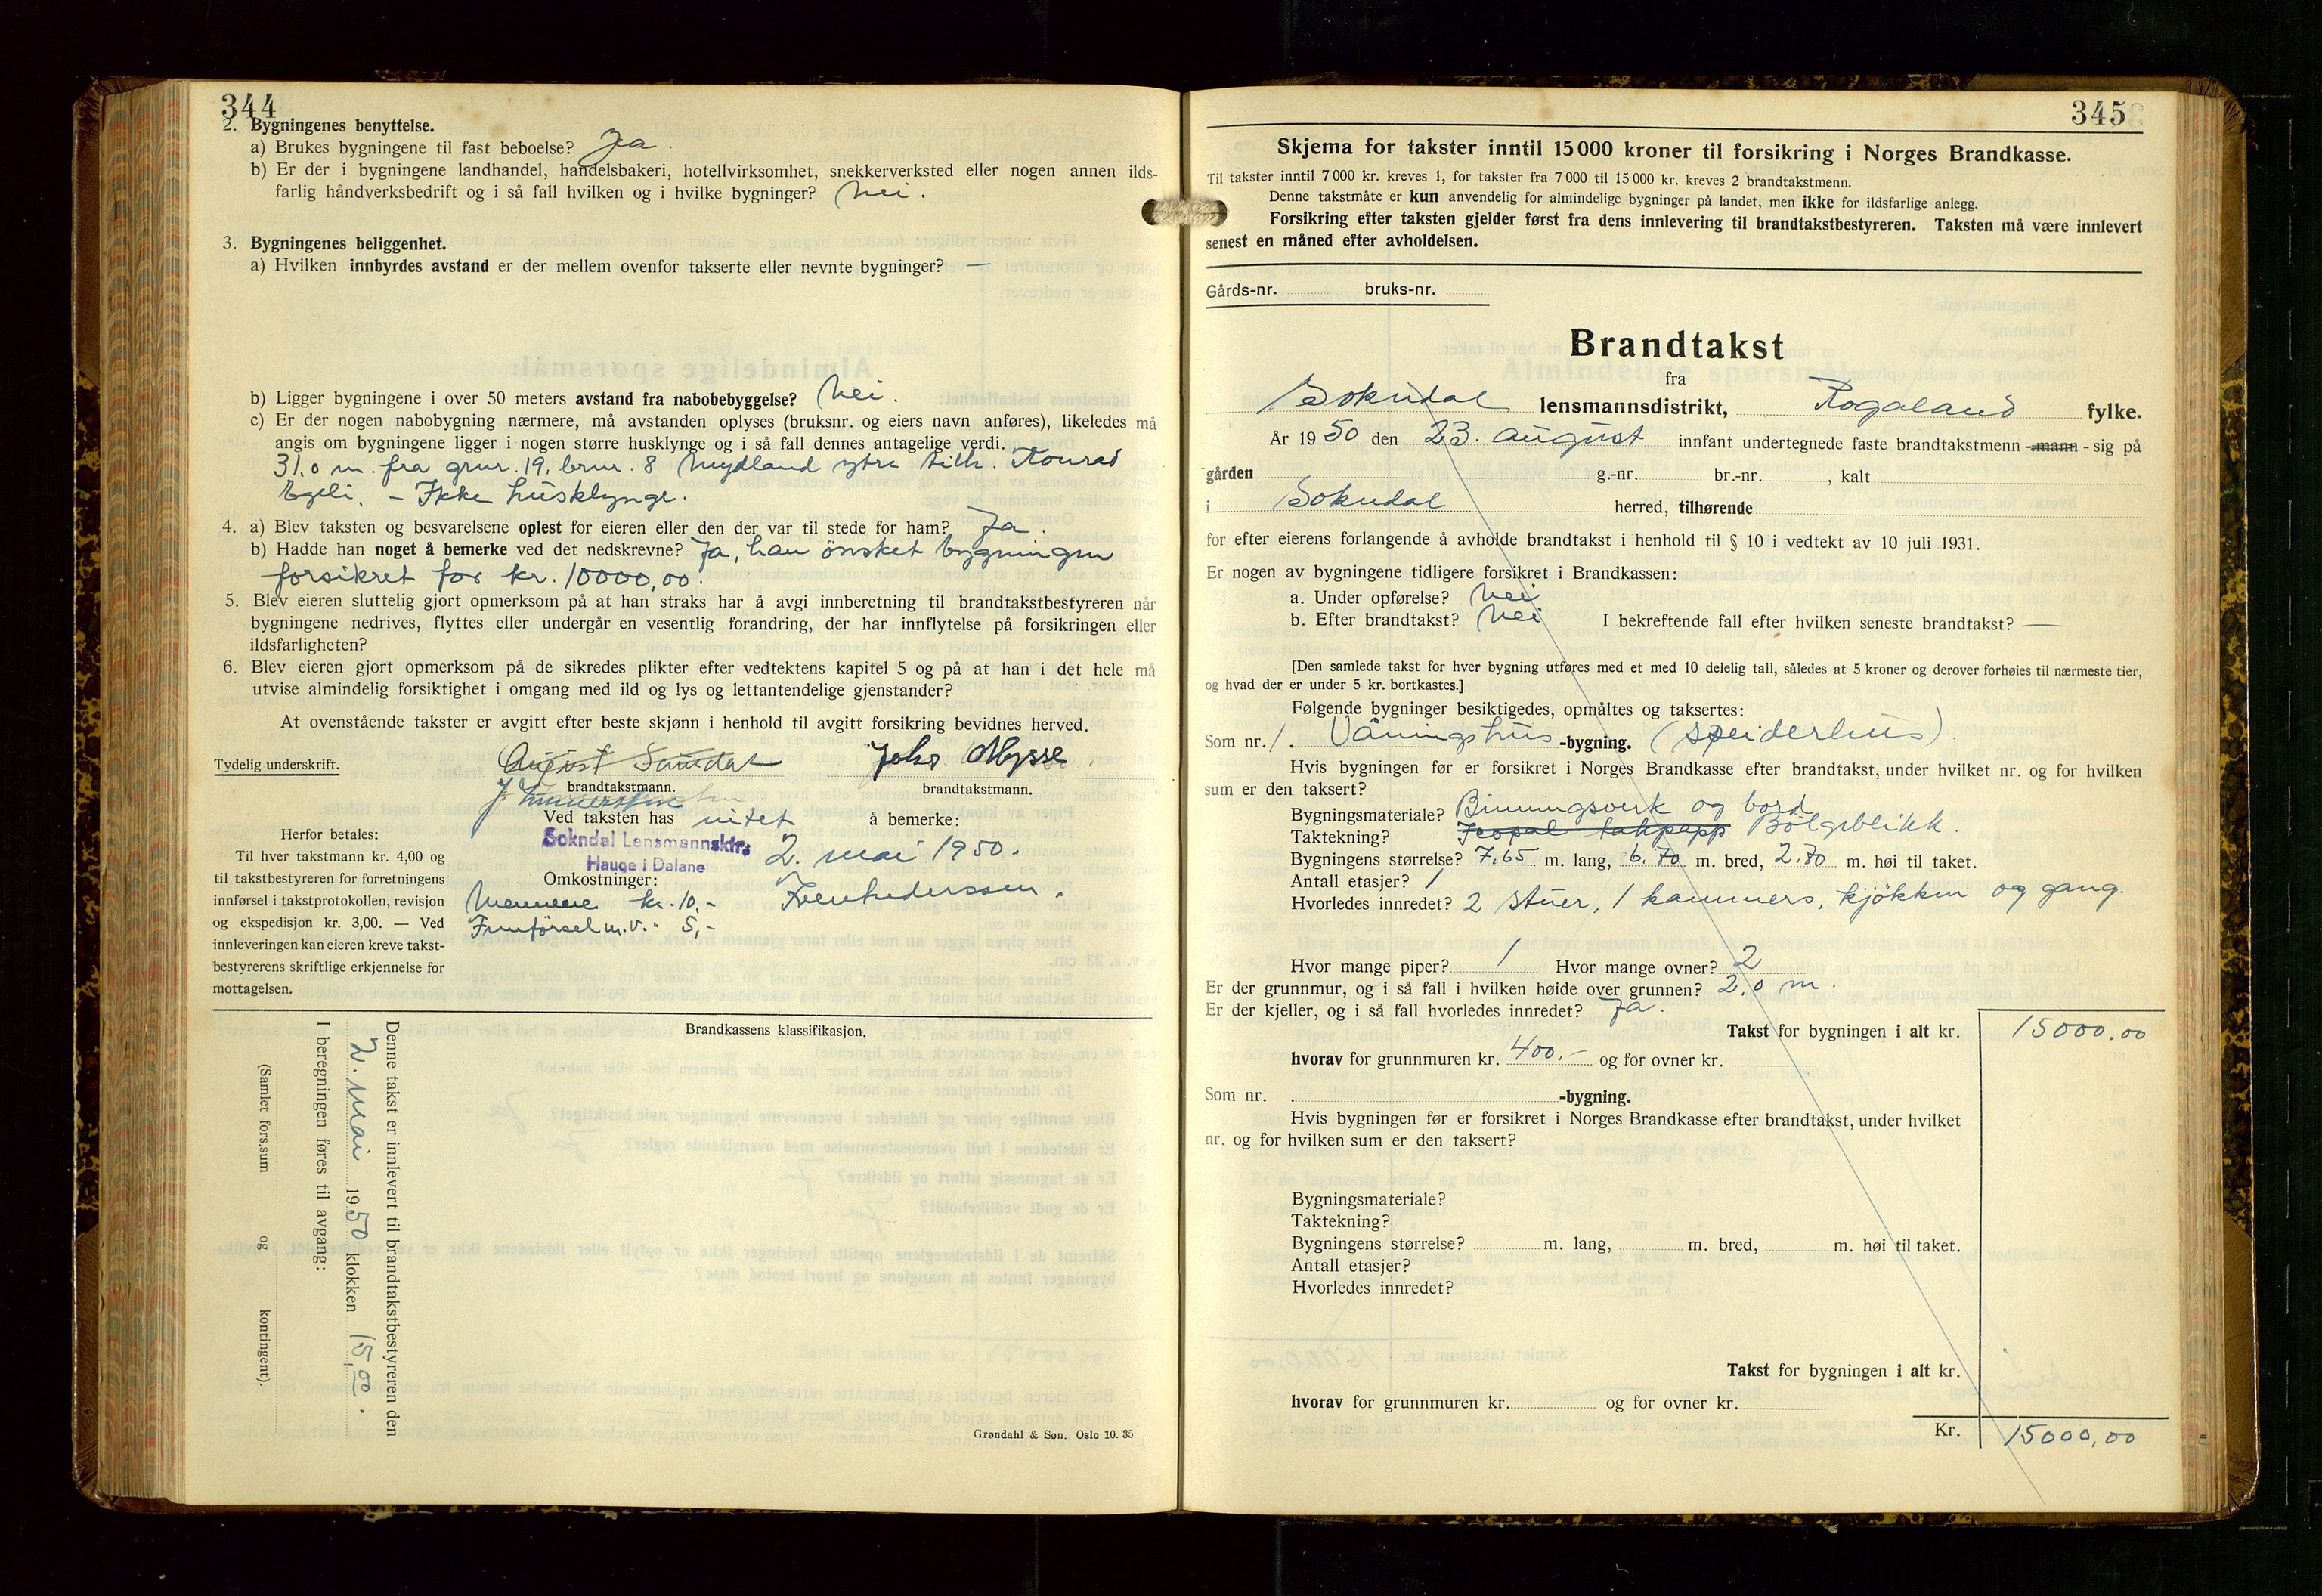 344
2. Bygningenes benyttelse.
a) Brukes bygningene til fast beboelse? Ja.
b) Er der i bygningene landhandel, handelsbakeri, hotellvirksomhet, snekkerverksted eller nogen annen ilds-
farlig håndverksbedrift og i så fall hvilken og i hvilke bygninger? Nei.
3. Bygningenes beliggenhet.
a) Hvilken innbyrdes avstand er der mellem ovenfor takserte eller nevnte bygninger? —
b) Ligger bygningene i over 50 meters avstand fra nabobebyggelse? Nei.
c) Er der nogen nabobygning nærmere, må avstanden oplyses (bruksnr. og eiers navn anføres), likeledes må
angis om bygningene ligger i nogen større husklynge og i så fall dennes antagelige verdi.
31.0 m. fra grnr. 19, brnr. 8 Mydland ytre tilh. Konrad
Egeli. – Ikke husklynge.
4. a) Blev taksten og besvarelsene oplest for eieren eller den der var til stede for ham? Ja.
b) Hadde han noget å bemerke ved det nedskrevne? Ja, han ønsket bygningen
forsikret for kr. 10000,00.
5. Blev eieren sluttelig gjort opmerksom på at han straks har å avgi innberetning til brandtakstbestyreren når
bygningene nedrives, flyttes eller undergår en vesentlig forandring, der har innflytelse på forsikringen eller
ildsfarligheten?
6. Blev eieren gjort opmerksom på de sikredes plikter efter vedtektens kapitel 5 og på at han i det hele må
utvise almindelig forsiktighet i omgang med ild og lys og lettantendelige gjenstander?
At ovenstående takster er avgitt efter beste skjønn i henhold til avgitt forsikring bevidnes herved.
Tydelig underskrift. August John Mysse
brandtakstmann. brandtakstmann.
Ved taksten has intet å bemerke:
Sokndal Lensmannsktr.
Hauge i Dalane 2. mai 1950.
Herfor betales:
Til hver takstmann kr. 4,00 og
til takstbestyreren for forretningens
innførsel i takstprotokollen, revisjon
og ekspedisjon kr. 3,00. — Ved
innleveringen kan eieren kreve takst-
bestyrerens skriftlige erkjennelse for
mottagelsen.
Omkostninger:
Mennene kr. 10,-
Innførsel m.v. " 5,-
Brandkassens klassifikasjon.
Denne takst er innlevert til brandtakstbestyreren den
2. Mai 1950 klokken 15,00.
I beregningen føres til avgang:
(Samlet fors.sum og kontingent).
Grøndahl & Søn. Oslo 10. 35
345
Skjema for takster inntil 15 000 kroner til forsikring i Norges Brandkasse.
Til takster inntil 7 000 kr. kreves 1, for takster fra 7 000 til 15 000 kr. kreves 2 brandtakstmenn.
Denne takstmåte er kun anvendelig for almindelige bygninger på landet, men ikke for ildsfarlige anlegg.
Forsikring efter taksten gjelder først fra dens innlevering til brandtakstbestyreren. Taksten må være innlevert
senest en måned efter avholdelsen.
Gårds-nr. bruks-nr.
Brandtakst
fra
Sokndal lensmannsdistrikt, Rogaland fylke.
År 1950 den 23. august innfant undertegnede faste brandtakstmenn -mann - sig på
gården g.-nr. br.-nr. , kalt
i Sokndal herred, tilhørende
for efter eierens forlangende å avholde brandtakst i henhold til § 10 i vedtekt av 10 juli 1931.
Er nogen av bygningene tidligere forsikret i Brandkassen:
a. Under opførelse? Nei
b. Efter brandtakst? Nei I bekreftende fall efter hvilken seneste brandtakst? —
[Den samlede takst for hver bygning utføres med et med 10 delelig tall, således at 5 kroner og derover forhøies til nærmeste tier,
og hvad der er under 5 kr. bortkastes.]
Følgende bygninger besiktigedes, opmåltes og taksertes:
Som nr. 1. Våningshus -bygning. (speiderhus).
Hvis bygningen før er forsikret i Norges Brandkasse efter brandtakst, under hvilket nr. og for hvilken
sum er den taksert?
Bygningsmateriale? Binningsverk og bord
Taktekning? takpapp Bölgeblikk.
Bygningens størrelse? 7.65 m. lang, 6.70 m. bred, 2.70 m. høi til taket.
Antall etasjer? 1
Hvorledes innredet? 2 stuer, 1 kammers, kjøkken og gang.
Hvor mange piper? 1 Hvor mange ovner? 2
Er der grunnmur, og i så fall i hvilken høide over grunnen? 2,0 m.
Er der kjeller, og i så fall hvorledes innredet? Ja.
Takst for bygningen i alt kr. 15000.00
hvorav for grunnmuren kr. 400.- og for ovner kr.
Som nr. -bygning.
Hvis bygningen før er forsikret i Norges Brandkasse efter brandtakst, under hvilket
nr. og for hvilken sum er den taksert?
Bygningsmateriale?
Taktekning?
Bygningens størrelse? m. lang, m. bred, m. høi til taket.
Antall etasjer?
Hvorledes innredet?
Takst for bygningen i alt kr.
hvorav for grunnmuren kr. og for ovner kr.
Kr. 15000,00